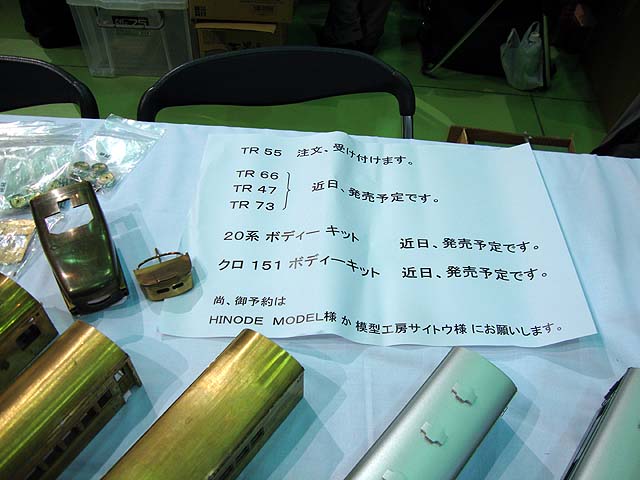 TR 55 注文、受け付けます。
TR 66
TR 47
TR 73
近日、発売予定です。
20系 ボディー キット 近日、発売予定です。
クロ 151 ボディーキット 近日、発売予定です。
尚、御予約は
HINODE MODEL様 か 模型工房サイトウ様 にお願いします。